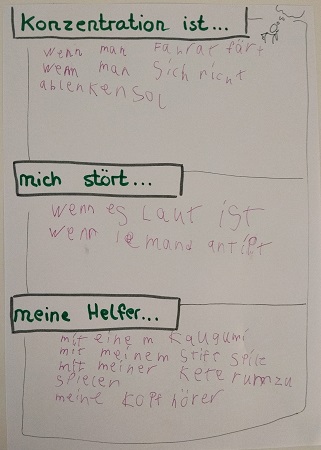 Konzentration ist...
wenn man Fahrat färt
wenn man sich nicht
ablenken sol
mich stört...
wenn es Laut ist
wenn iemand antipt
meine Helfer...
mit einem Kaugumi
mit meinem Stift spile
mit meiner Kete rumzu
spielen
meine Kopf hörer